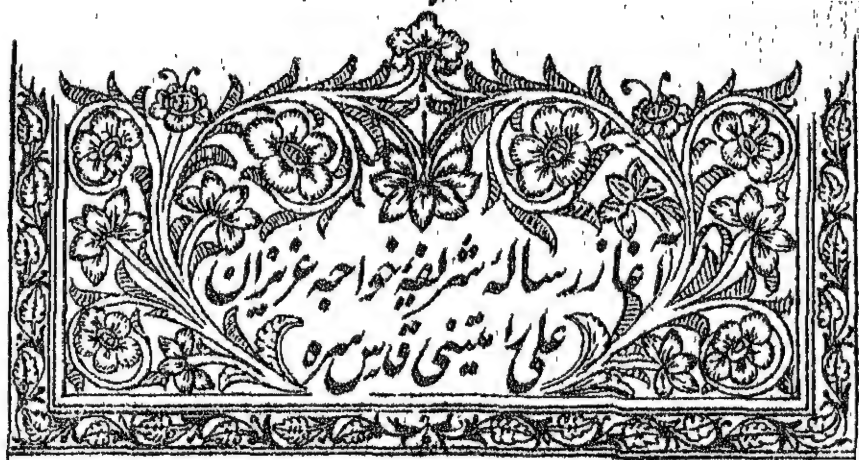 آغاز رسالهٔ شریفهٔ خواجه عزیزان
علی رامیتنی قدس سره